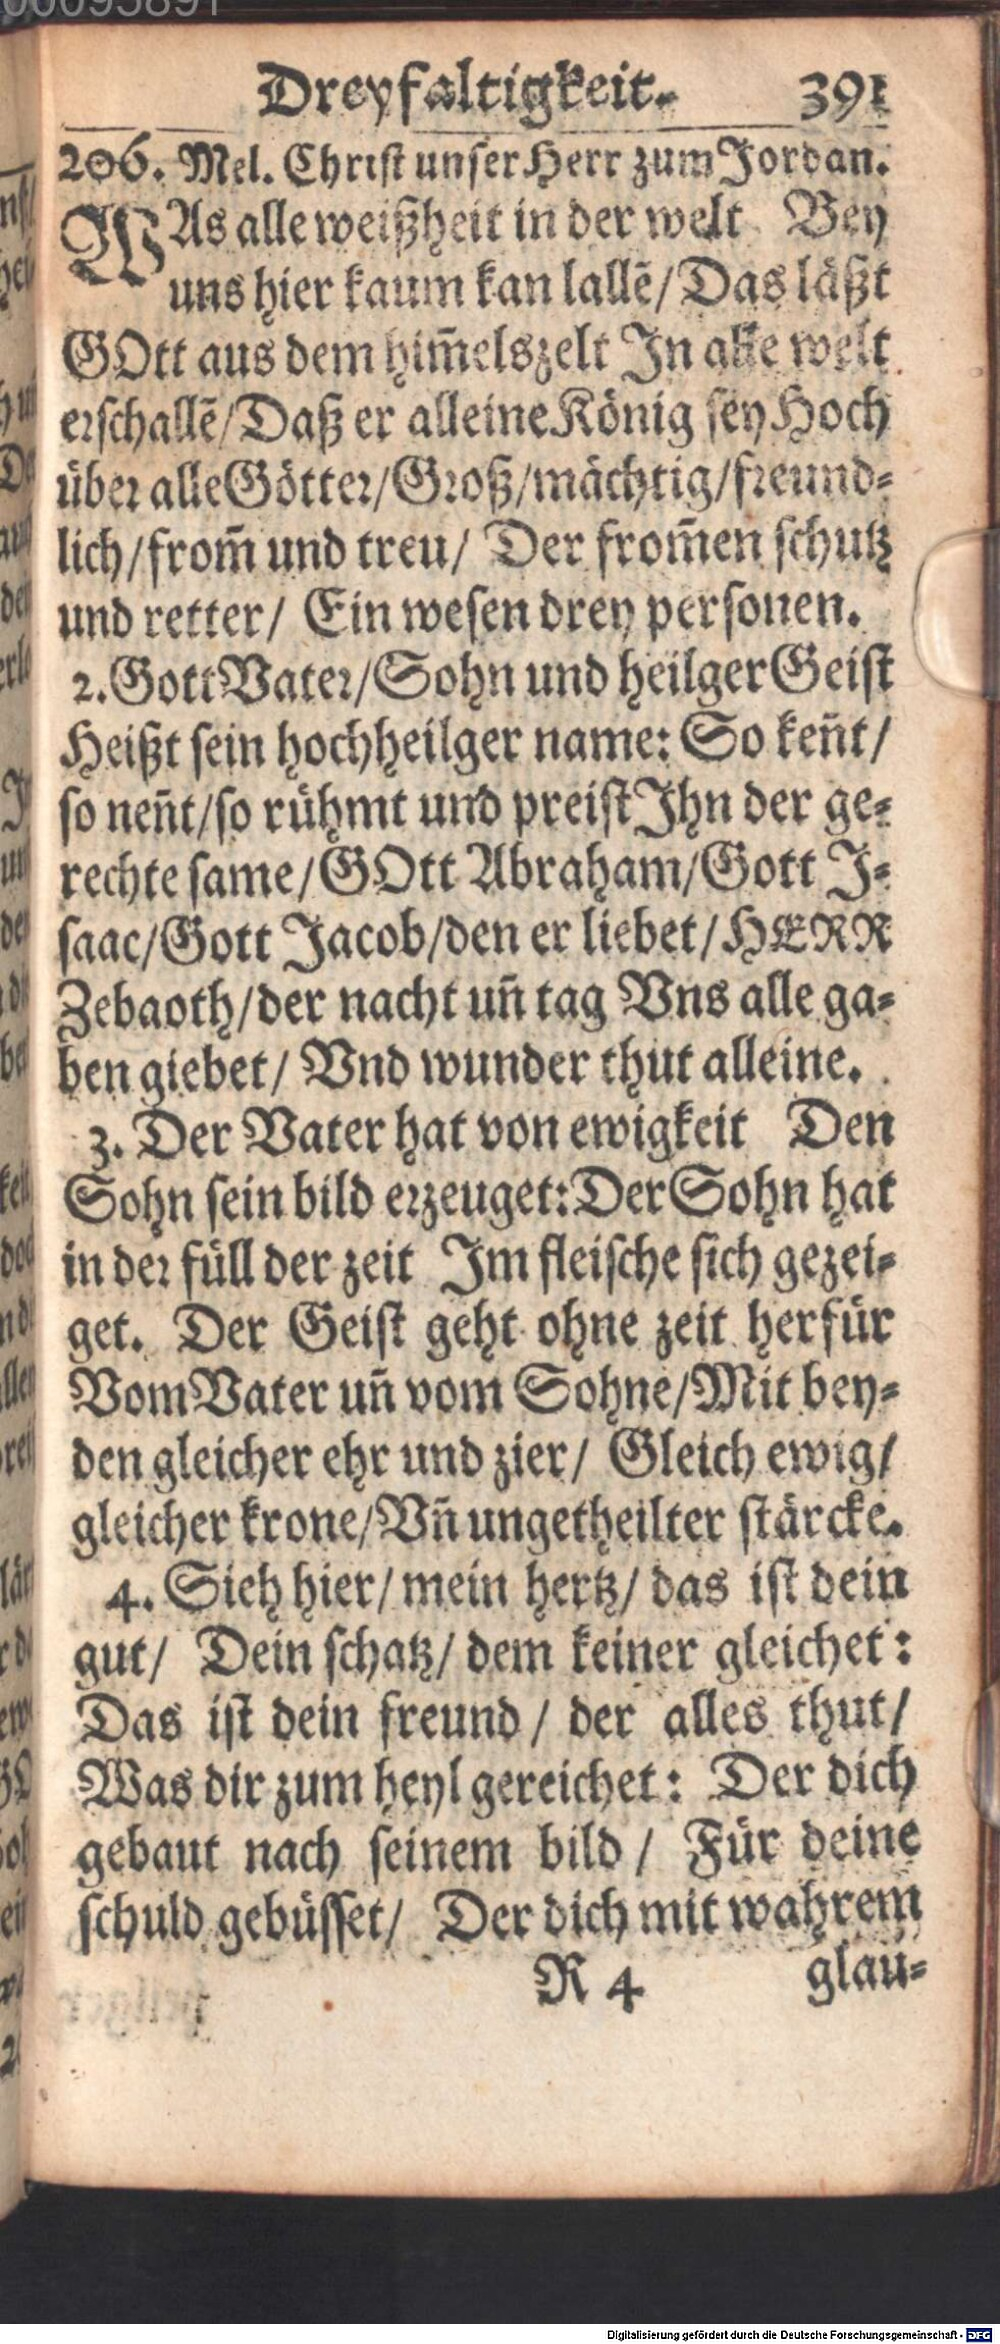 00095891
Dreyfaltigkeit. 391
206. Mel. Christ unser Herr zum Jordan.
WAs alle weißheit in der welt Bey
uns hier kaum kan lallē/ Das läßt
GOtt aus dem him̄elszelt In alle welt
erschallē/ Daß er alleine König sey Hoch
über alle Götter/ Groß/ mächtig/ freund-
lich/ from̄ und treu/ Der from̄en schutz
und retter/ Ein wesen drey personen.
2. Gott Vater/ Sohn und heilger Geist
Heißt sein hochheilger name: So ken̄t/
so nen̄t/ so rühmt und preist Ihn der ge-
rechte same/ GOtt Abraham/ Gott I-
saac/ Gott Jacob/ den er liebet/ HERR
Zebaoth/ der nacht un̄ tag Vns alle ga-
ben giebet/ Vnd wunder thut alleine.
3. Der Vater hat von ewigkeit Den
Sohn sein bild erzeuget: Der Sohn hat
in der füll der zeit Im fleische sich gezei-
get. Der Geist geht ohne zeit herfür
Vom Vater un̄ vom Sohne/ Mit bey-
den gleicher ehr und zier/ Gleich ewig/
gleicher krone/ Vn̄ ungetheilter stärcke.
4. Sieh hier/ mein hertz/ das ist dein
gut/ Dein schatz/ dem keiner gleichet:
Das ist dein freund / der alles thut/
Was dir zum heyl gereichet: Der dich
gebaut nach seinem bild / Für deine
schuld gebüsset/ Der dich mit wahrem
R 4 glau-
Digitalisierung gefördert durch die Deutsche Forschungsgemeinschaft - DFG